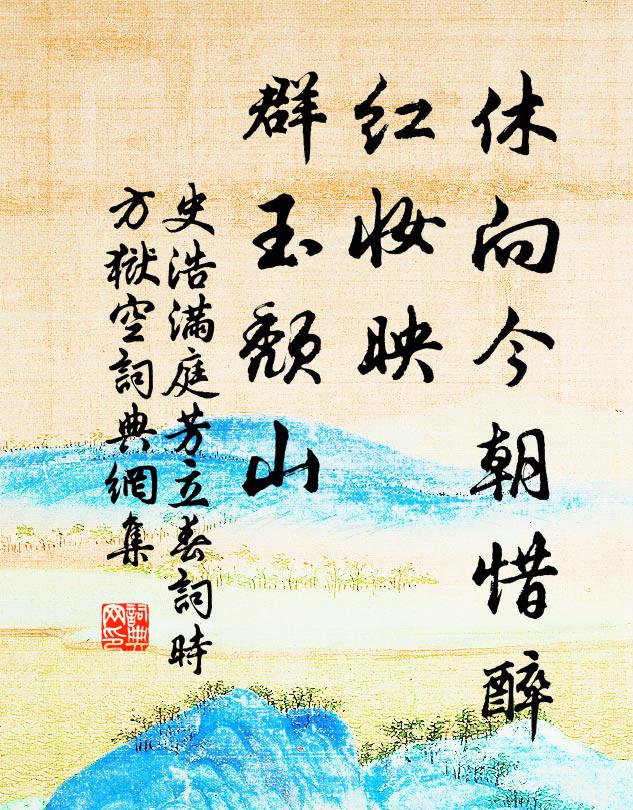 休向今朝惜醉
红妆映
群玉颓山
史浩满庭芳立春詞時
方獄空詞典網集
詞典
网印